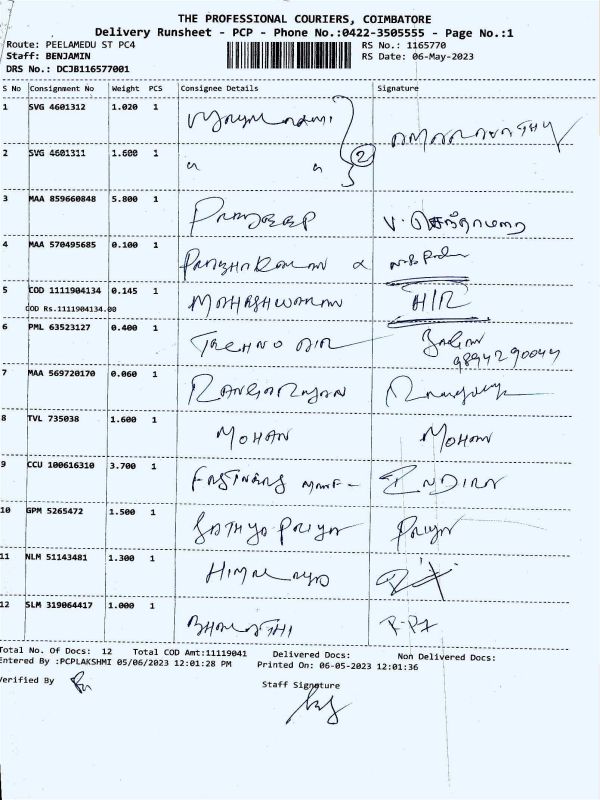 THE PROFESSIONAL COURIERS, COIMBATORE
Delivery Runsheet - PCP - Phone No.:0422-3505555 - Page No.:1
Route: PEELAMEDU ST PC4 RS No.: 1165770
Staff: BENJAMIN RS Date: 06-May-2023
DRS No.: DCJB116577001
S No Consignment No Weight PCS Consignee Details Signature
1 SVG 4601312 1.020 1
2 SVG 4601311 1.600 1 " " 2
3 MAA 859660848 5.800 1 PRADEEP V. செந்தாமரை
4 MAA 570495685 0.100 1 PRABHAKARAN
5 COD 1111904134 0.145 1 MAHESHWARAN H/R
COD Rs.1111904134.00
6 PML 63523127 0.400 1 TECHNO AIR
9894290044
7 MAA 569720170 0.060 1 RANGARAJAN
8 TVL 735038 1.600 1 MOHAN MOHAN
9 CCU 100616310 3.700 1 FASTNERS MANF- INDIRA
10 GPM 5265472 1.500 1 SATHYA PRIYA PRIYA
11 NLM 51143481 1.300 1 HIMALAYA
12 SLM 319064417 1.000 1 BHARATHI
Total No. Of Docs: 12 Total COD Amt:11119041 Delivered Docs: Non Delivered Docs:
Entered By :PCPLAKSHMI 05/06/2023 12:01:28 PM Printed On: 06-05-2023 12:01:36
Verified By Staff Signature